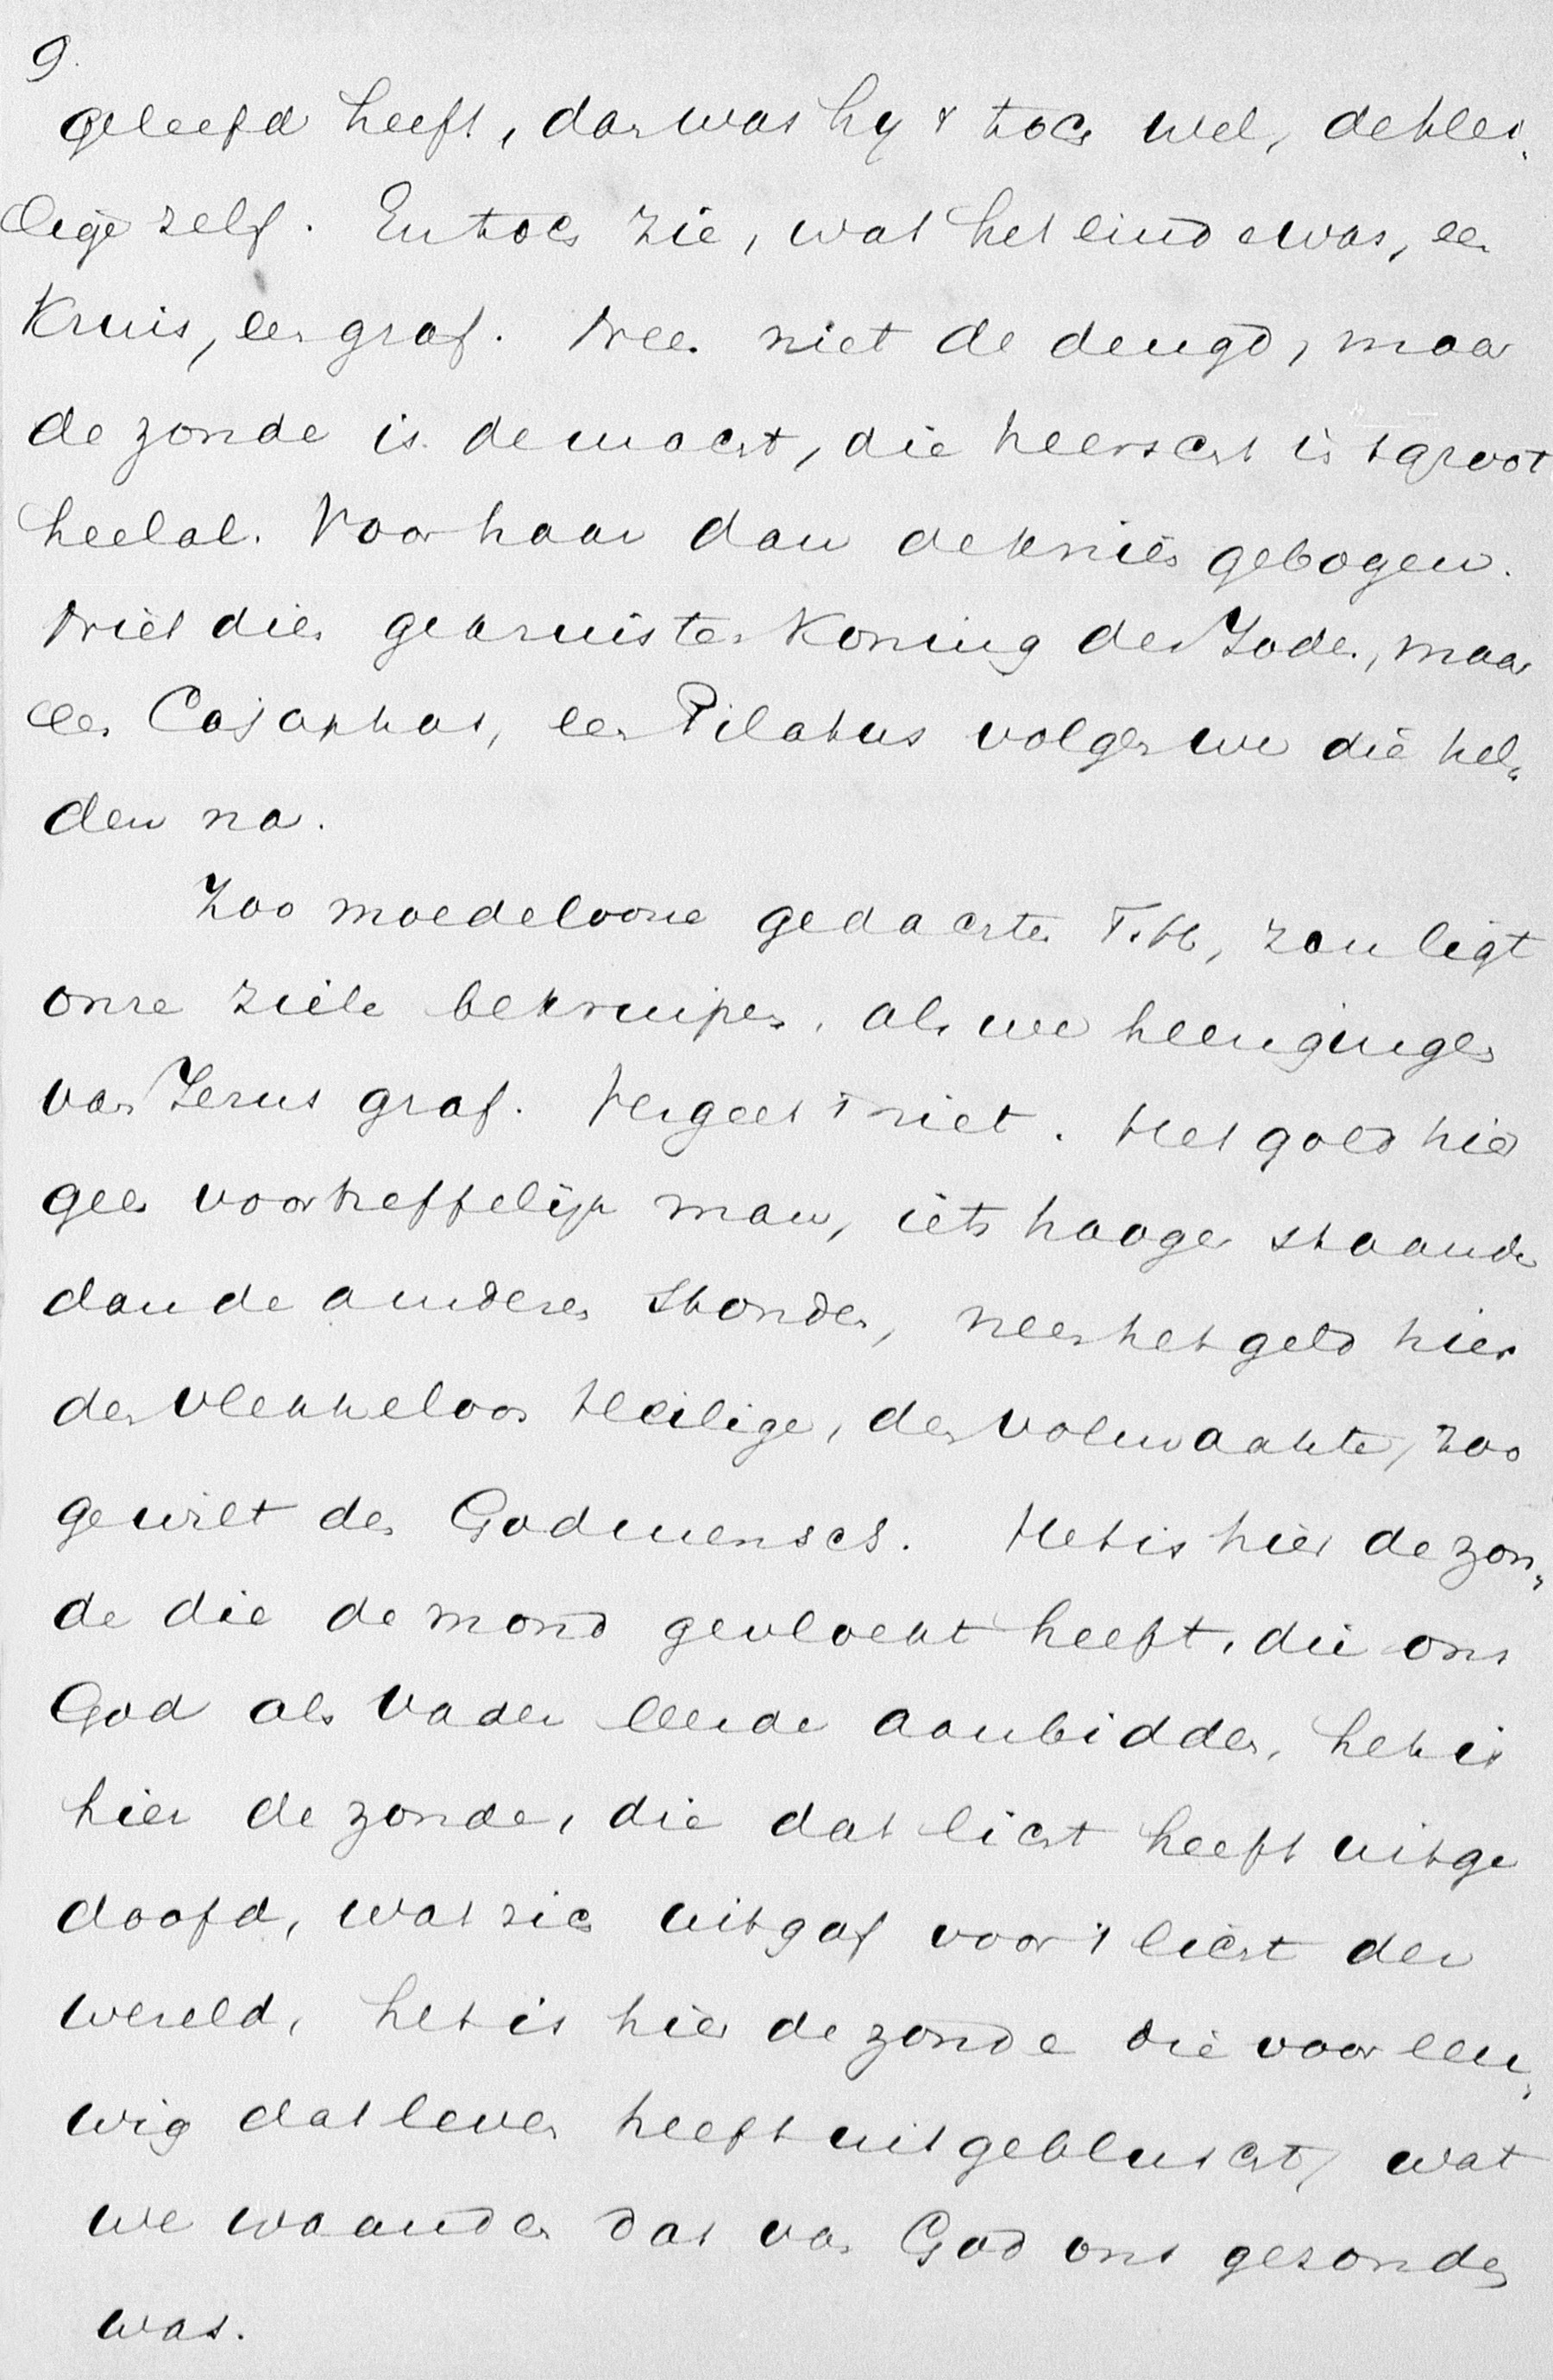 9.
geleefd heeft, dan was hy 't toch wel, de hei-
lige zelf. En toch zie, wat het einde was, een
kruis, een graf. Neen niet de deugd, maar
de zonde is de macht, die heerscht in 't groot
heelal. Voor haar dan de knieën gebogen.
Niet dien gekruisten Koning der Joden, maar
een Cajaphas, een Pilatus volgen we die hel-
den na.
Zoo moedelooze gedachten T.H., zou ligt
onze ziele bekruipen, als we heengingen
van Jezus graf. Vergeet 't niet. Het gold hier
geen voortreffelijk man, iets hooger staande
dan de anderen stonden, neen het geld hier
den vlekkeloos Heilige, den volmaakte, zoo
ge wilt den Godmensch. Het is hier de zon-
de die de mond gevloekt heeft, die ons
God als Vader leerde aanbidden, het is
hier de zonde, die dat licht heeft uitge
doofd, wat zich uitgaf voor 't licht der
wereld, het is hier de zonde die voor eeu-
wig dat leven heeft uitgebluscht, wat
we waanden dat van God ons gezonden
was.